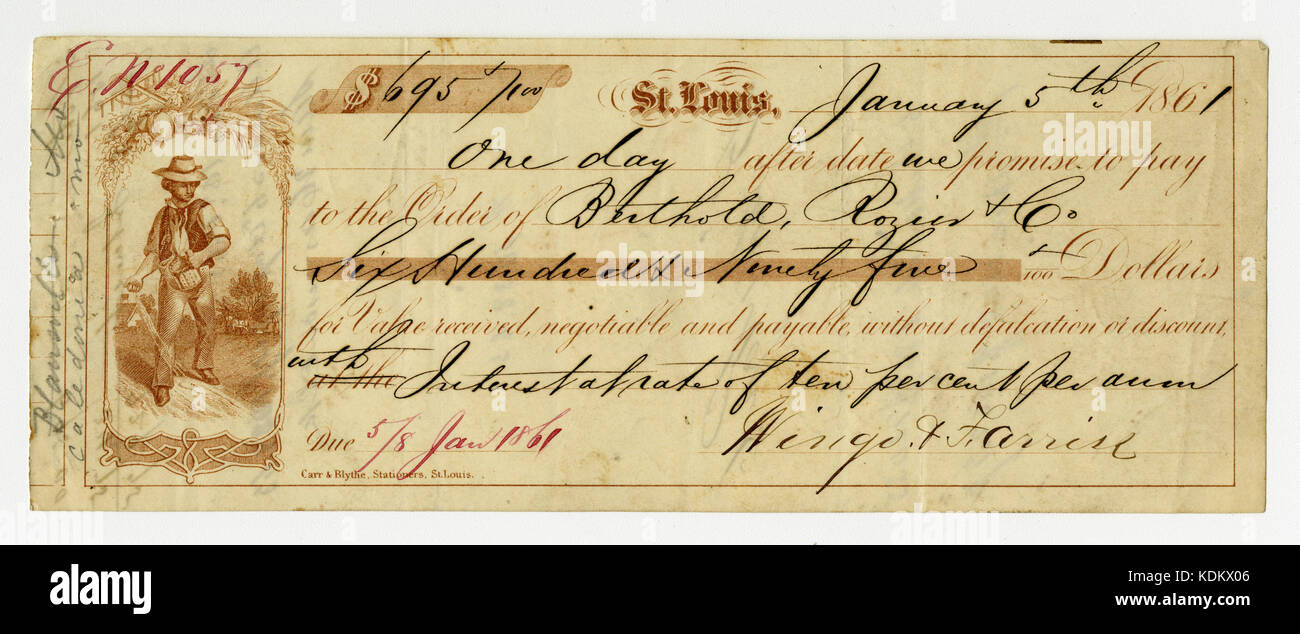 E. No 1057
$ 695 5/100 St. Louis, January 5th 1861
One day after date we promise to pay
to the Order of Berthold, Rozier & Co
Six Hundred & Ninety five 5/100 Dollars
for Value received, negotiable and payable, without defalcation or discount,
with Interest at rate of ten per cent per anum
Due 5/8 Jan 1861 Wingo & Farrish
Carr & Blythe, Stationers, St. Louis.
Caledonia mo
alamy
Image ID: KDKX06
www.alamy.com